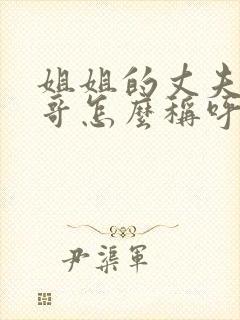 姐姐的丈夫
哥怎麽稱呼
尹渠軍